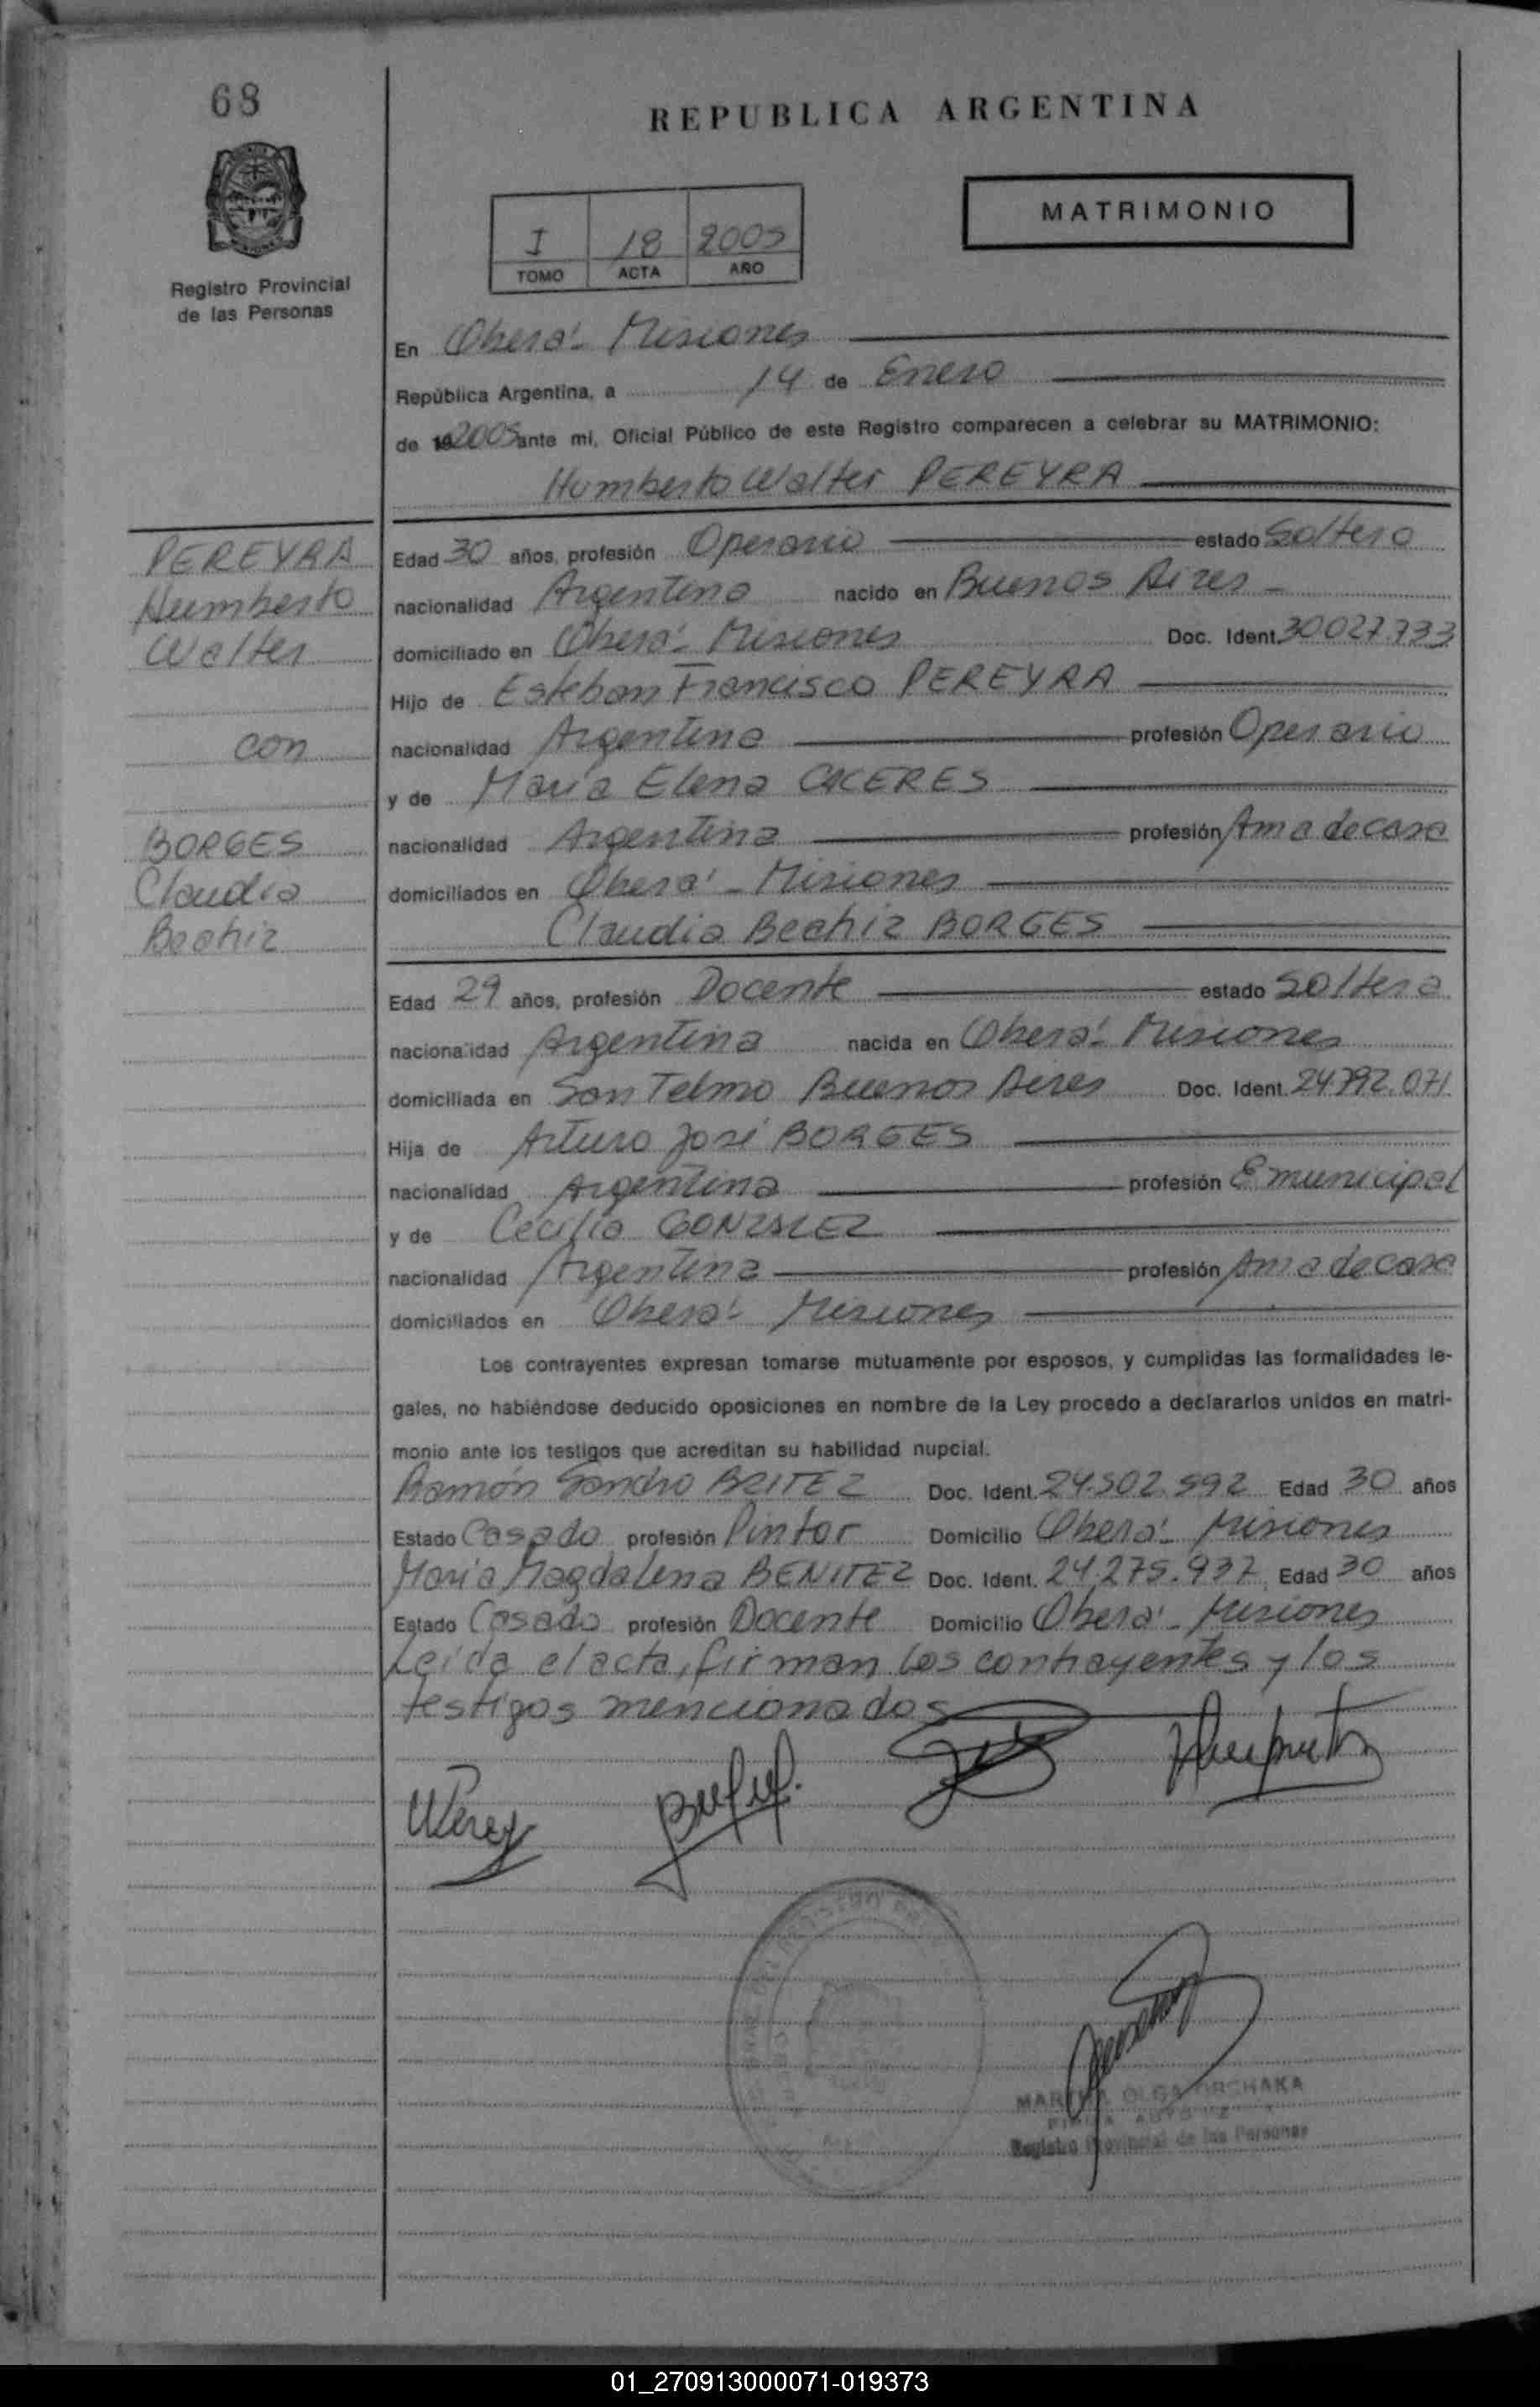 68
REPUBLICA ARGENTINA
MATRIMONIO
I 18 2005
TOMO ACTA AÑO
Registro Provincial
de las Personas
En Oberá - Misiones
República Argentina, a 14 de Enero
de 2005 ante mi, Oficial Público de este Registro comparecen a celebrar su MATRIMONIO:
Humberto Walter PEREYRA
PEREYRA
Humberto
Walter
con
BORGES
Claudia
Beatriz
Edad 30 años, profesión Operario estado Soltero
nacionalidad Argentina nacido en Buenos Aires -
domiciliado en Oberá - Misiones Doc. Ident. 30027.733
Hijo de Esteban Francisco PEREYRA
nacionalidad Argentina profesión Operario
y de María Elena CACERES
nacionalidad Argentina profesión Ama de casa
domiciliados en Oberá - Misiones
Claudia Beatriz BORGES
Edad 29 años, profesión Docente estado Soltera
nacionalidad Argentina nacida en Oberá - Misiones
domiciliada en San Telmo Buenos Aires Doc. Ident. 24.792.071
Hija de Arturo José BORGES
nacionalidad Argentina profesión E municipal
y de Cecilia GONZALEZ
nacionalidad Argentina profesión Ama de casa
domiciliados en Oberá - Misiones
Los contrayentes expresan tomarse mutuamente por esposos, y cumplidas las formalidades le-
gales, no habiéndose deducido oposiciones en nombre de la Ley procedo a declararlos unidos en matri-
monio ante los testigos que acreditan su habilidad nupcial.
Ramón Sandro BRITEZ Doc. Ident. 24.502.592 Edad 30 años
Estado Casado profesión Pintor Domicilio Oberá - Misiones
María Magdalena BENITEZ Doc. Ident. 24.275.937 Edad 30 años
Estado Casado profesión Docente Domicilio Oberá - Misiones
Leída el acta, firman los contrayentes y los
testigos mencionados
MARTHA OLGA
Registro Provincial de las Personas
01_270913000071-019373